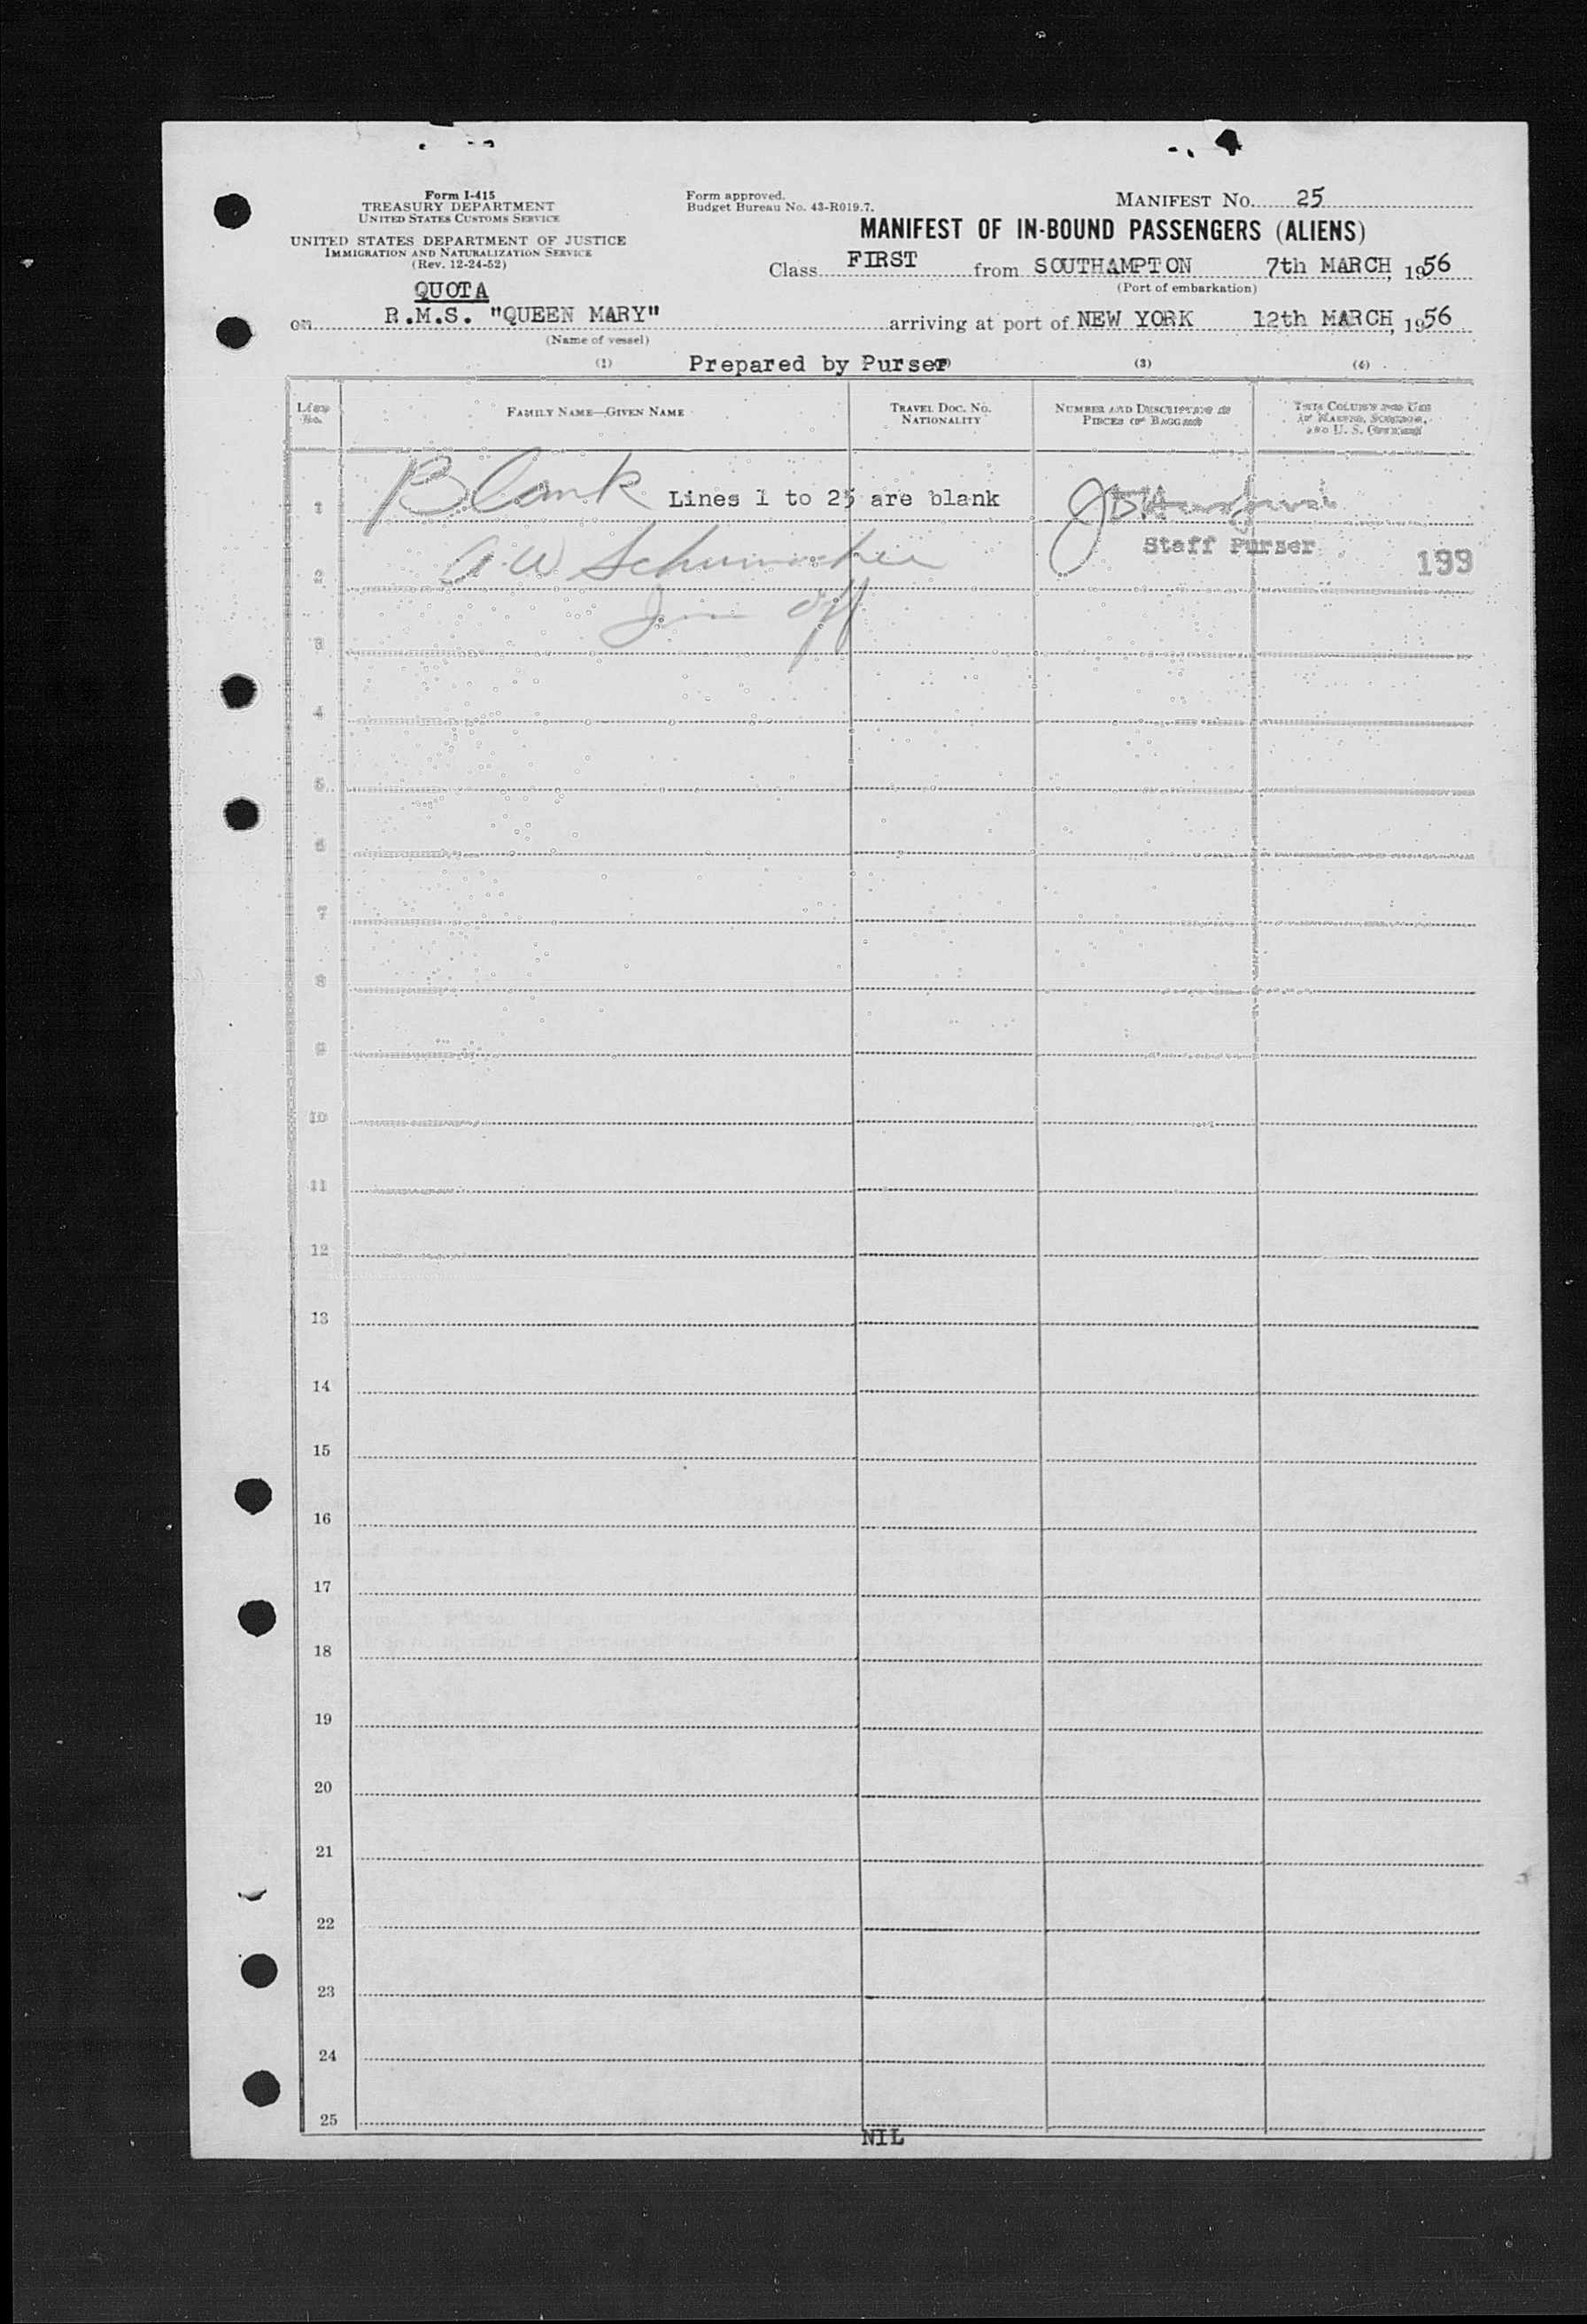 Form I-415
TREASURY DEPARTMENT
UNITED STATES CUSTOMS SERVICE
UNITED STATES DEPARTMENT OF JUSTICE
IMMIGRATION AND NATURALIZATION SERVICE
(Rev. 12-24-52)
Form approved.
Budget Bureau No. 43-R019.7.
MANIFEST NO. 25
MANIFEST OF IN-BOUND PASSENGERS (ALIENS)
Class FIRST from SOUTHAMPTON 7th MARCH, 1956
(Port of embarkation)
QUOTA
on R.M.S. "QUEEN MARY" arriving at port of NEW YORK 12th MARCH, 1956
(Name of vessel)
(1) Prepared by Purser (3) (4)
Line No. FAMILY NAME—GIVEN NAME TRAVEL DOC. NO. NATIONALITY NUMBER AND DESCRIPTION OF PIECES OF BAGGAGE THIS COLUMN FOR USE OF MASTER, SURGEON, AND U. S. OFFICERS
1 Blank Lines 1 to 25 are blank
A W Schumacher
Staff Purser 199
2
Imm Off
3
4
5
6
7
8
9
10
11
12
13
14
15
16
17
18
19
20
21
22
23
24
25
NIL